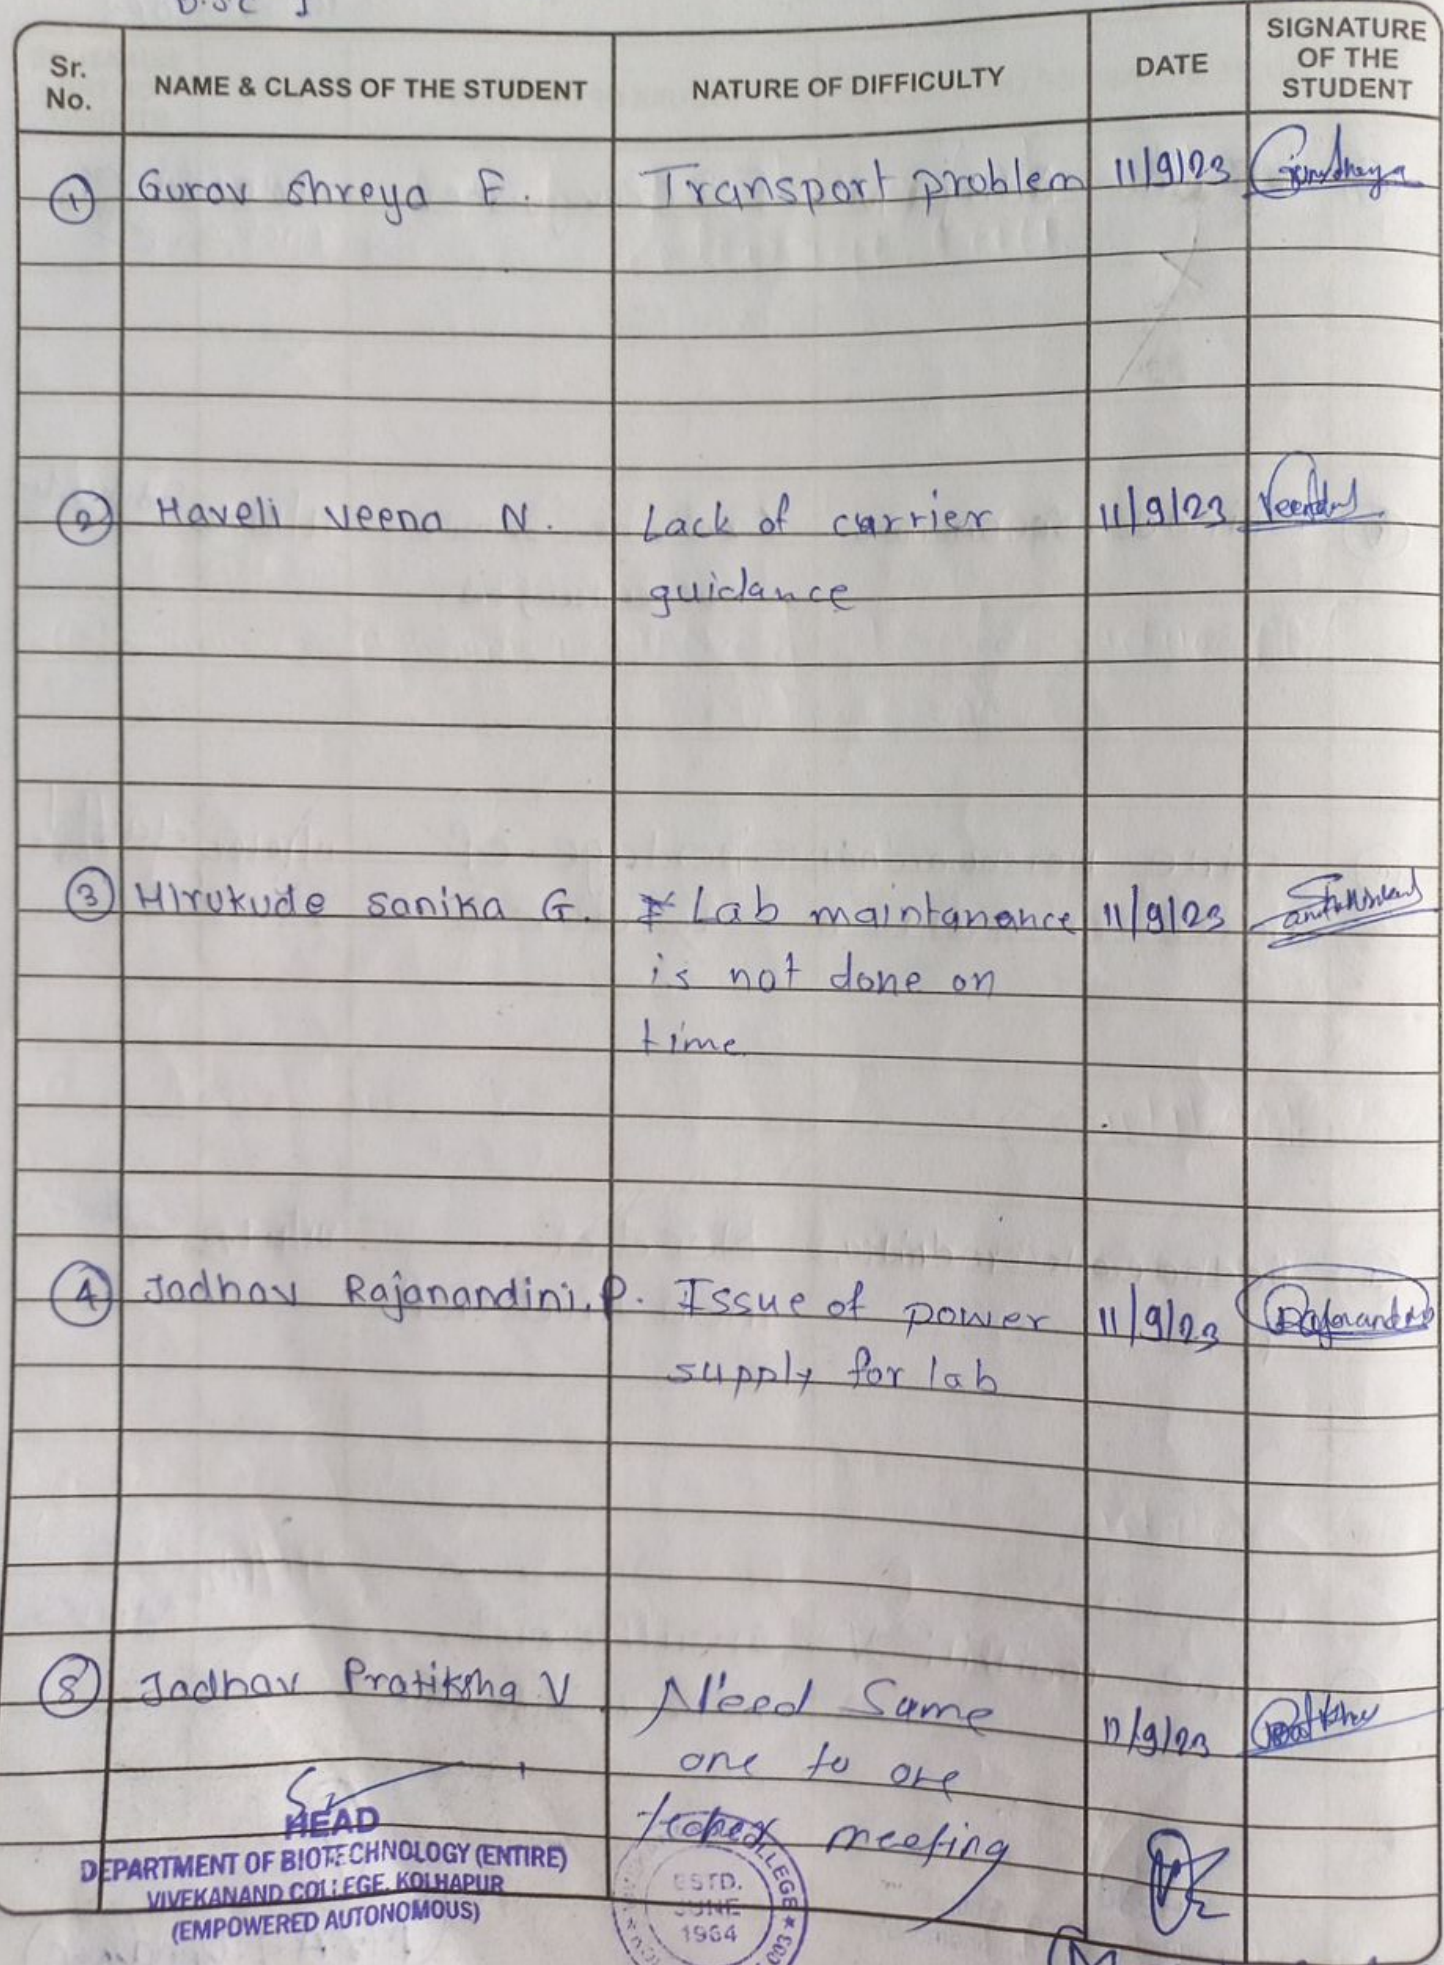 B.Sc I
Sr. No.
NAME & CLASS OF THE STUDENT
NATURE OF DIFFICULTY
DATE
SIGNATURE OF THE STUDENT
1 Gurav Shreya E. Transport problem 11/9/23
2 Haveli Veena N. Lack of carrier 11/9/23
guidance
3 Hirukude Sanika G. Lab maintanance 11/9/23
is not done on
time
4 Jadhav Rajanandini. P. Issue of power 11/9/23
supply for lab
5 Jadhav Pratiksha V Need Same 11/9/23
one to one
meeting
HEAD
DEPARTMENT OF BIOTECHNOLOGY (ENTIRE)
VIVEKANAND COLLEGE, KOLHAPUR
(EMPOWERED AUTONOMOUS)
ESTD.
JUNE
1964